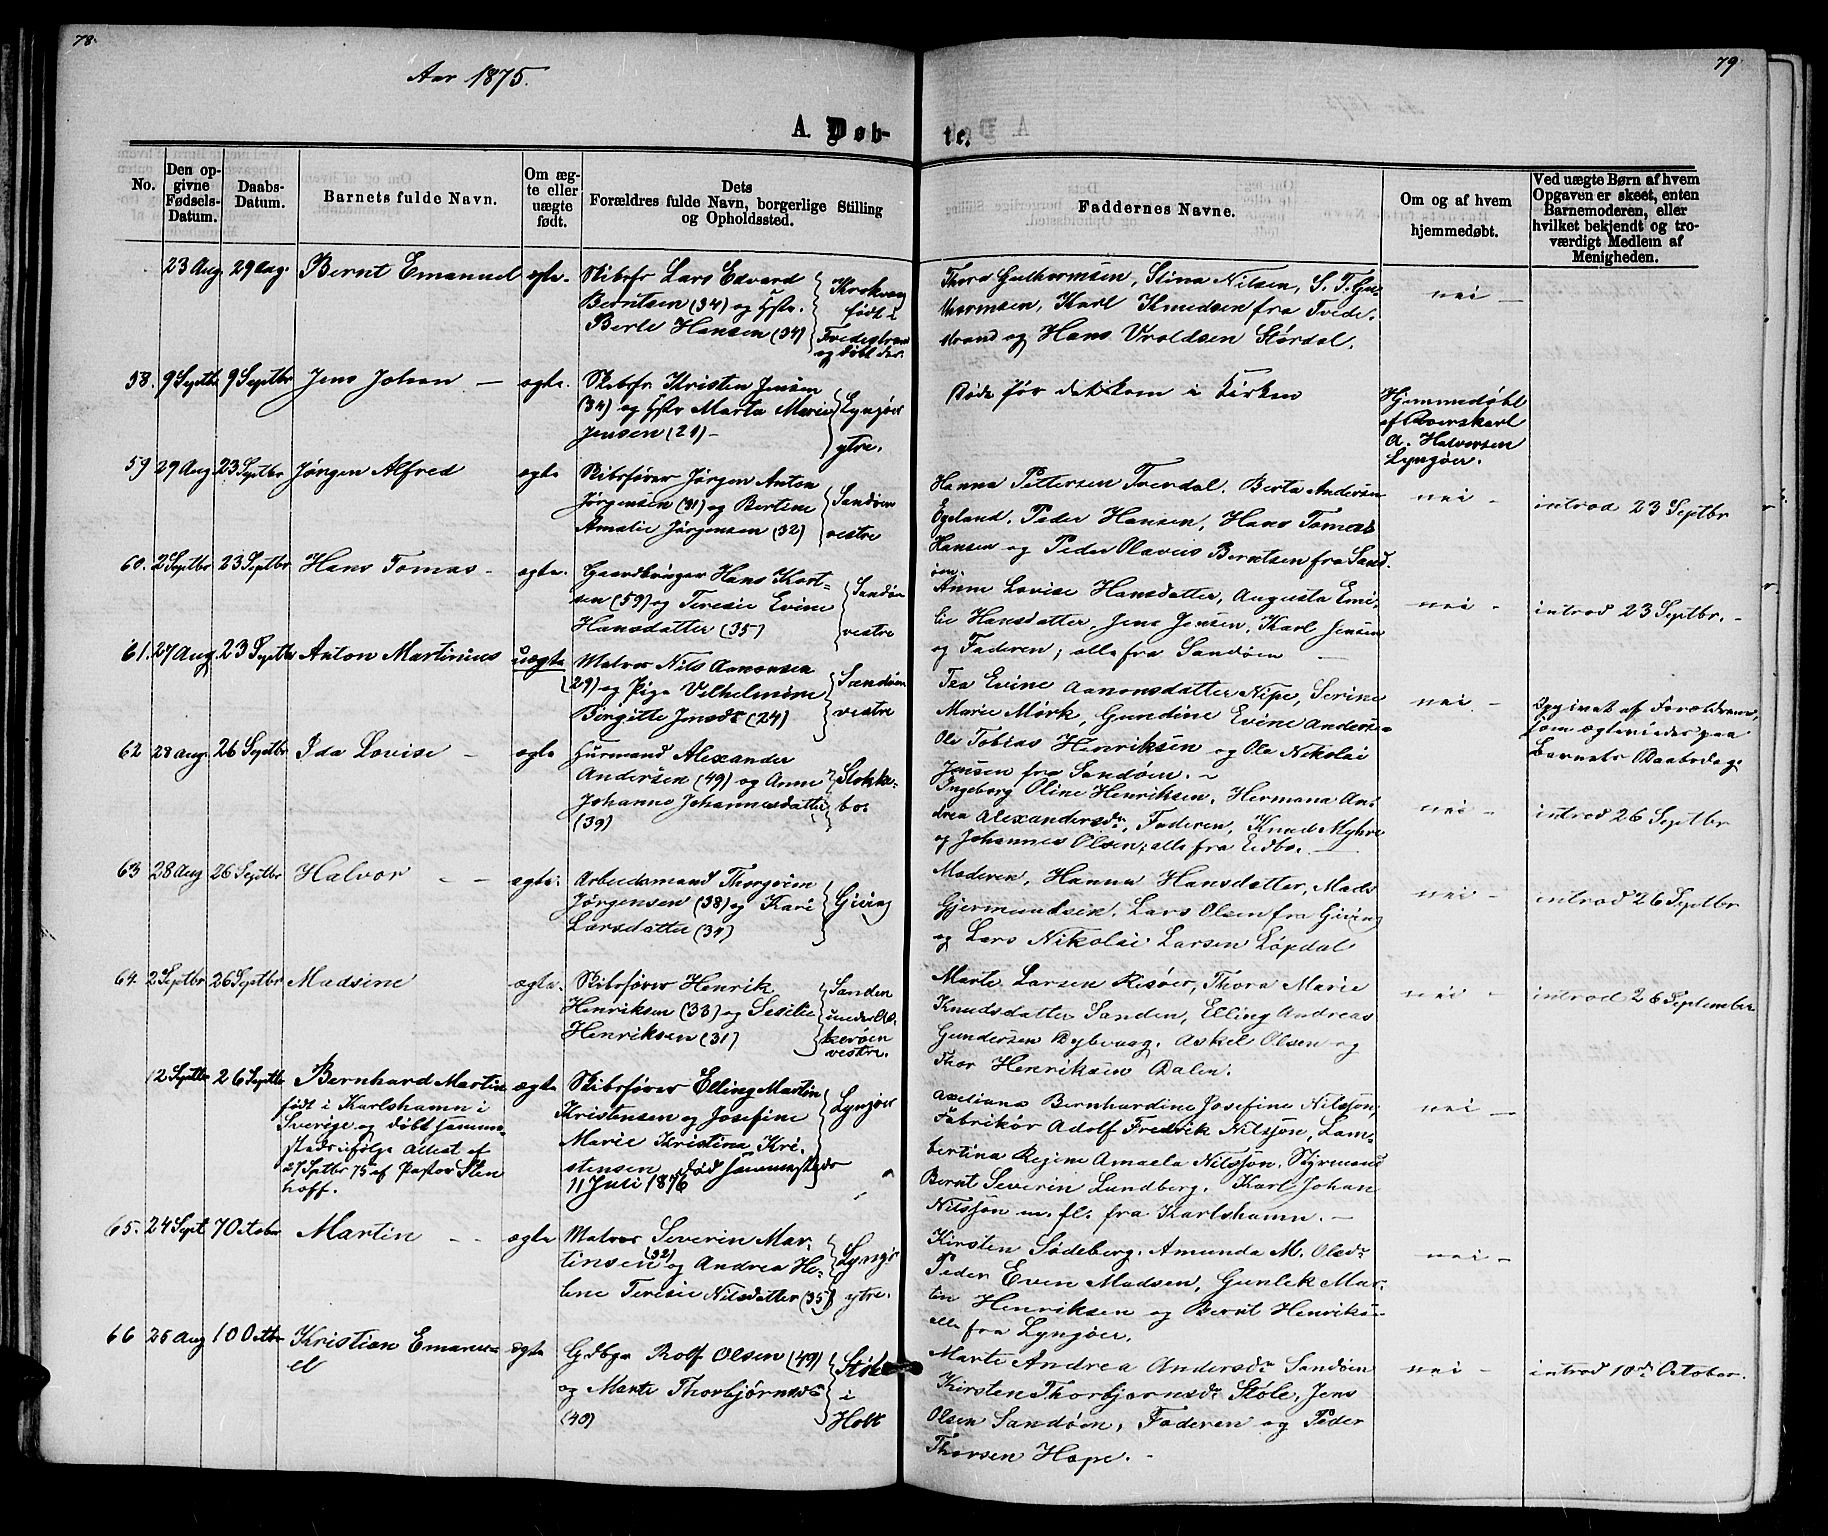 78.
79.
Aar 1875.
A. Døb-
te.
No.
Den op-
givne
Fødsels-
Datum.
Daabs-
Datum.
Barnets fulde Navn.
Om æg-
te eller
uægte
født.
Dets
Forældres fulde Navn, borgerlige Stilling
og Opholdssted.
Faddernes Navne.
Om og af hvem
hjemmedøbt.
Ved uægte Børn af hvem
Opgaven er skeet, enten
Barnemoderen, eller
hvilket bekjendt og tro-
værdigt Medlem af
Menigheden.
23 Aug 29 Aug. Bernt Emanuel ægte.
Skibsfr Lars Edvard
Berntsen (34) og Hstr.
Berte Hansen (34)
Krokvaag
født i
Tvedestrand
og døbt der.
Thord Guthormsen, Stina Nilsen, S. T. Gu-
thormsen, Karl Knudsen fra Tvede-
strand og Hans Vroldsen Stordal.
nei —
58. 9 Septbr 9 Septbr Jens Johan — ægte.
Skibsfr. Kristen Jensen
(34) og Hstr Marta Marie
Jensen (21) —
Lyngøer
ytre.
Døde før det kom i Kirken
Hjemmedøbt
af Toverskarl
A. Halvorsen
Lyngøer.
59 29 Aug 23 Septbr Jørgen Alfred ægte
Skibsfører Jørgen Anton
Jørgensen (31) og Bertine
Amalie Jørgensen (32)
Sandøen
vestre
Hanna Pettersen Tverdal. Berta Andersen
Egeland, Peder Hansen, Hans Tomas
Hansen og Peder Olavus Berntsen fra Sand-
øen.
nei —
introd 23 Septbr
60. 2 Septbr 23 Septbr Hans Tomas — ægte.
Gaardbruger Hans Knut-
sen (59) og Teresie Evine
Hansdatter (35)
Sandøen
vestre
Anne Lovise Hansdatter, Augusta Emi-
lie Hansdatter, Jens Jensen, Karl Jensen
og Faderen, alle fra Sandøen —
nei —
introd 23 Septbr. —
61. 27 Aug 23 Septbr Anton Martinius uægte
Matros Nils Aanonsen
(29) og Pige Vilhelmine
Bergitte Jensdr (24)
Sandøen
vestre
Tea Evine Aanonsdatter Nipe, Serine
Marie Mørk, Gundine Evine Anderse-
Ole Tobias Henriksen og Ole Nikolai
Jensen fra Sandøen. —
nei —
Opgivet af Forældrene,
som ægteviedes paa
Barnets Daabsdag.
62 28 Aug. 26 Septbr Ida Lovise — ægte
Husmand Alexander
Andersen (49) og Anne
Johanne Johannesdatter
(39)
Stokke-
bo.
Ingeborg Oline Henriksen, Hermana An-
drea Alexandersdr, Faderen, Knud Myhre
og Johannes Olsen, alle fra Eidbo. —
nei —
introd 26 Septbr
63 28 Aug 26 Septbr Halvor — — ægte.
Arbeidsmand Thorgrim
Jørgensen (38) og Kari
Larsdatter (34)
Giving
Moderen, Hanna Hansdatter, Mads
Gjermundsen, Lars Olsen fra Giving
og Lars Nikolai Larsen Løvdal
nei —
introd 26 Septbr
64. 2 Septbr 26 Septbr Madsine ægte.
Skibsfører Henrik
Henriksen (33) og Sesilie
Henriksen (31)
Sanden
under
kerøen
vestre.
Marte Larsen Risøer, Thora Marie
Knudsdatter Sanden, Elling Andreas
Gundersen Dybvaag, Askel Olsen og
Thor Henriksen Dalen.
nei —
introd 26 September
12 Septbr 26 Septbr Bernhard Martin ægte
født i Karlshamn i
Sverige og døbt samme-
steds ifølge Attest af
27 Sptbr 75 af Pastor Sten
hoff.
Skibsfører Elling Martin
Kristensen og Josefine
Marie Kristina Kri-
stensen død sammesteds
11 Juli 1876
Lyngøer
Axeliana Bernhardine Josefine Nilsson,
Fabrikør Adolf Fredrik Nilsson, Lam-
bertina Regine Amaela Nilsson, Styrmand
Bernt Severin Lundberg, Karl Johan
Nilsson m. fl. fra Karlshamn. —
nei —
65. 24 Sept 7 October Martin — — ægte
Matros Severin Mar-
tinsen (32) og Andrea He-
lene Teresie Nilsdatter (35)
Lyngør
ytre.
Kirsten Sødeberg, Amunda M. Olsdr
Peder Even Madsen, Gunlek Mar-
tin Henriksen og Bernt Henriksen
alle fra Lyngøer.
nei —
66 25 Aug 10 Octbr Kristian Emanu-
el
ægte
Gdbgr Rolf Olsen (49)
og Marte Thorbjørnsdr
(40)
Støle
i
Holt
Marte Andrea Andersdr Sandøen
Kirsten Thorbjørnsdr Støle, Jens
Olsen Sandøen, Faderen og Peder
Thorsen Hope. —
nei —
introd 10de October.